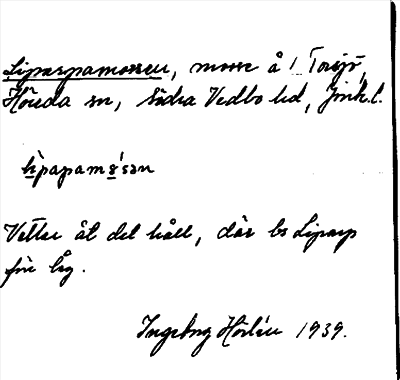 Liparpamossen, mosse å 1 Torsjö,
Höreda sn, Södra Vedbo hd, Jönk. l.
lìpapamɷ̀sən
Vetter åt det håll, där bs Liparp
för låg.
Ingeborg Hörlén 1939.